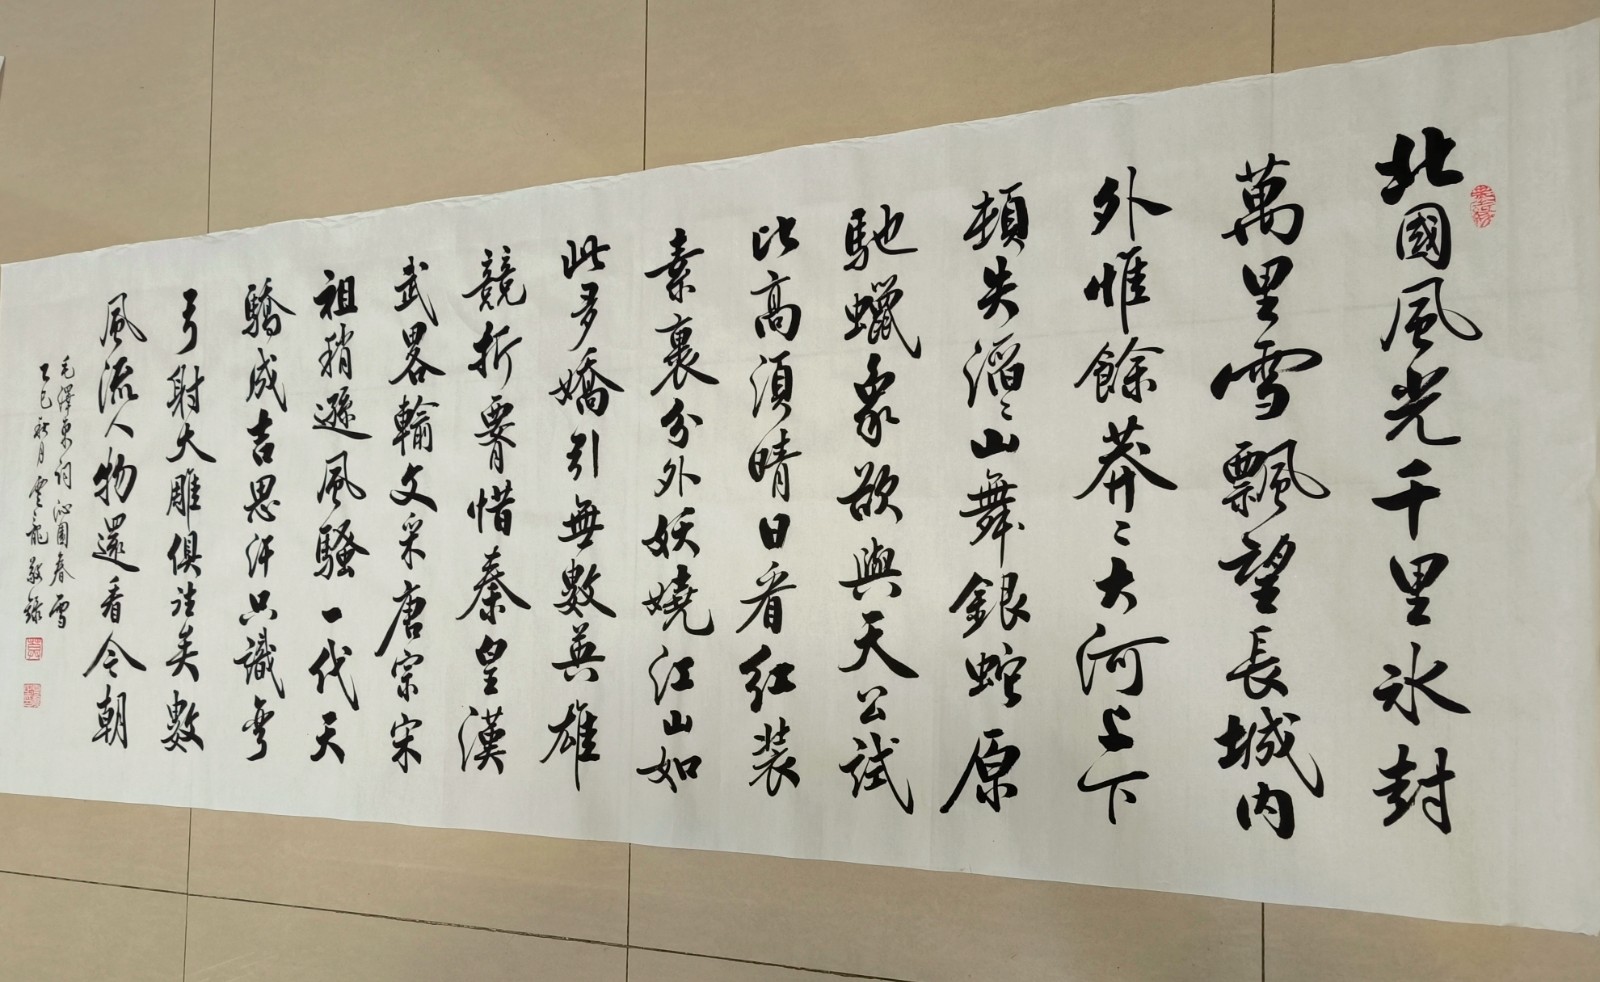 北國風光千里冰封
萬里雪飄望長城內
外惟餘莽〻大河上下
頓失滔〻山舞銀蛇原
馳蠟象欲與天公試
比高須晴日看紅裝
素裹分外妖嬈江山如
此多嬌引無數英雄
競折腰惜秦皇漢
武略輸文采唐宗宋
祖稍遜風騷一代天
驕成吉思汗只識彎
弓射大雕俱往矣數
風流人物還看今朝
毛澤東詞沁園春雪
乙巳秋月雲龍敬錄